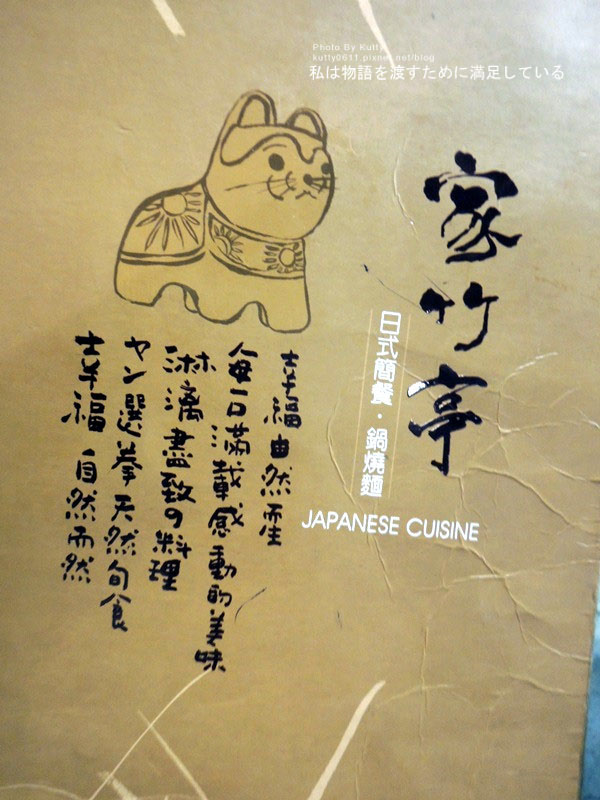 Photo By Kutty
kutty0611.pixnet.net/blog
私は物語を渡すために満足している
家竹亭
日式簡餐・鍋燒麵
JAPANESE CUISINE
幸福由然而生
每口滿載感動的美味
淋漓盡致の料理
ヤン選拳天然旬食
幸福 自然而然